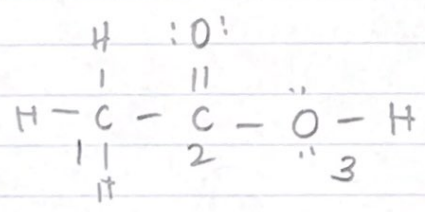 H :O:
| ||
H - C - C - Ö - H
1 | 2 .. 3
H